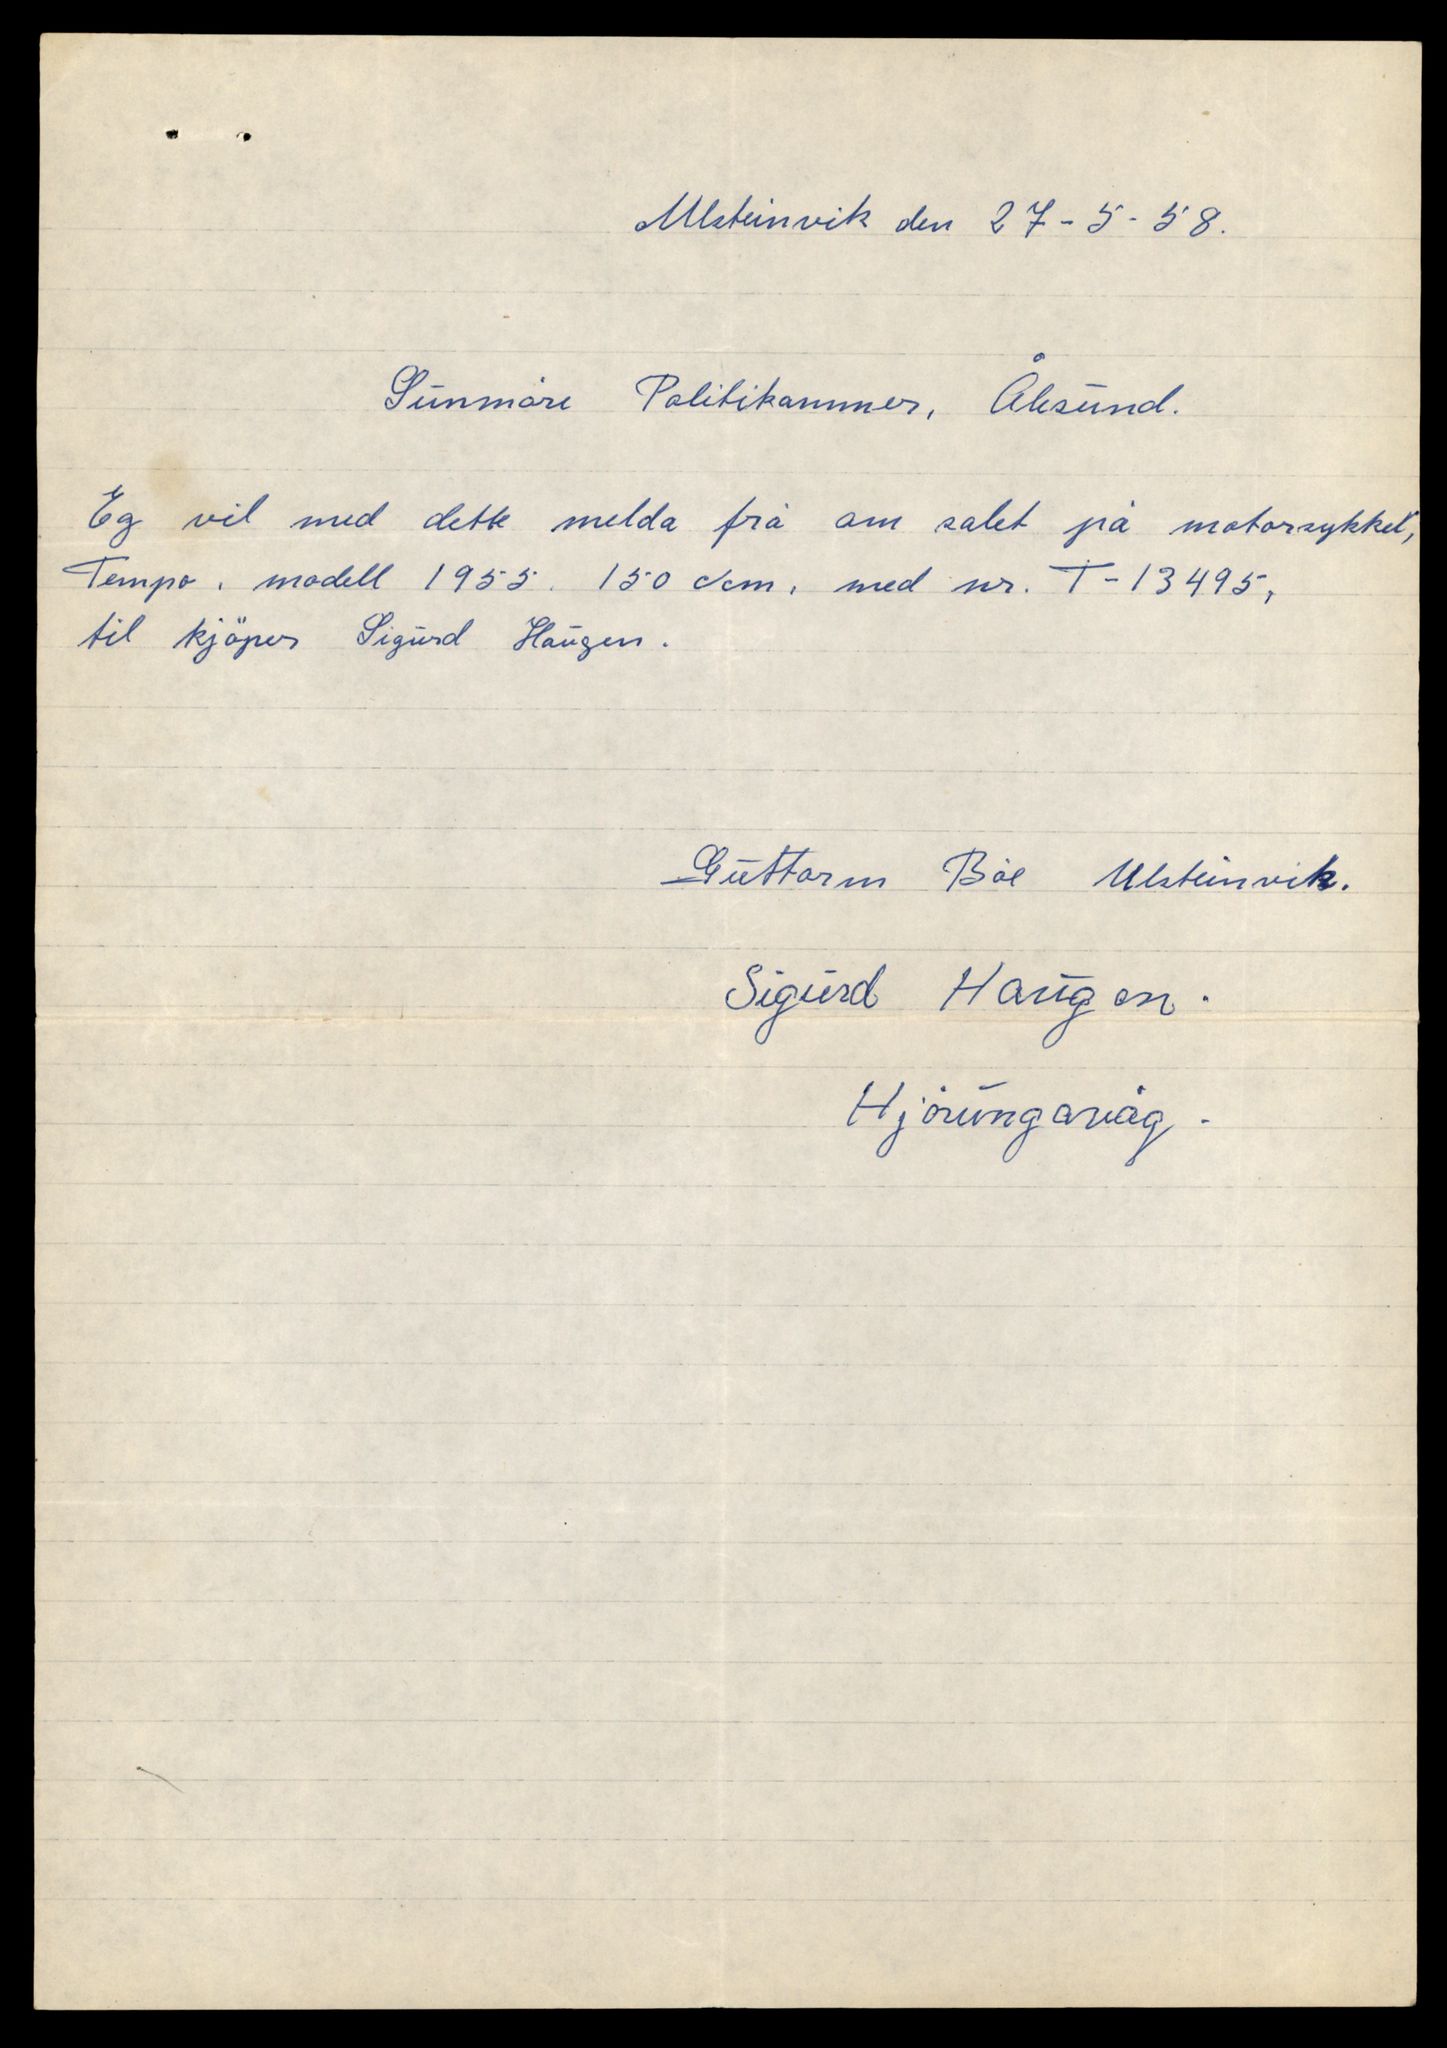 Ulsteinvik den 27-5-58.
Sunmøre Politikammer, Ålesund.
Eg vil med dette melda frå om salet på motorsykkel,
Tempo. modell 1955. 150 c/cm. med nr. T-13495,
til kjöper Sigurd Haugen.
Guttorm Böe Ulsteinvik.
Sigurd Haugen.
Hjörungavåg.